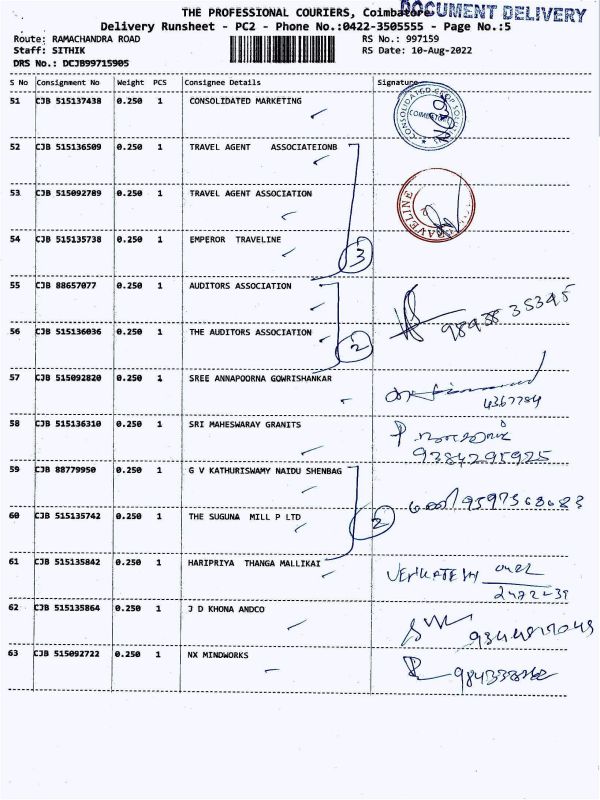 THE PROFESSIONAL COURIERS, Coimbatore
DOCUMENT DELIVERY
Delivery Runsheet - PC2 - Phone No.:0422-3505555 - Page No.:5
Route: RAMACHANDRA ROAD RS No.: 997159
Staff: SITHIK RS Date: 10-Aug-2022
DRS No.: DCJB99715905
S No Consignment No Weight PCS Consignee Details Signature
51 CJB 515137438 0.250 1 CONSOLIDATED MARKETING
52 CJB 515136509 0.250 1 TRAVEL AGENT ASSOCIATEIONB
53 CJB 515092789 0.250 1 TRAVEL AGENT ASSOCIATION
54 CJB 515135738 0.250 1 EMPEROR TRAVELINE
3
55 CJB 88657077 0.250 1 AUDITORS ASSOCIATION
98438 35345
56 CJB 515136036 0.250 1 THE AUDITORS ASSOCIATION
2
57 CJB 515092820 0.250 1 SREE ANNAPOORNA GOWRISHANKAR
4367784
58 CJB 515136310 0.250 1 SRI MAHESWARAY GRANITS
9384295925
59 CJB 88779950 0.250 1 G V KATHURISWAMY NAIDU SHENBAG
60 CJB 515135742 0.250 1 THE SUGUNA MILL P LTD
2
61 CJB 515135842 0.250 1 HARIPRIYA THANGA MALLIKAI
62 CJB 515135864 0.250 1 J D KHONA ANDCO
63 CJB 515092722 0.250 1 NX MINDWORKS